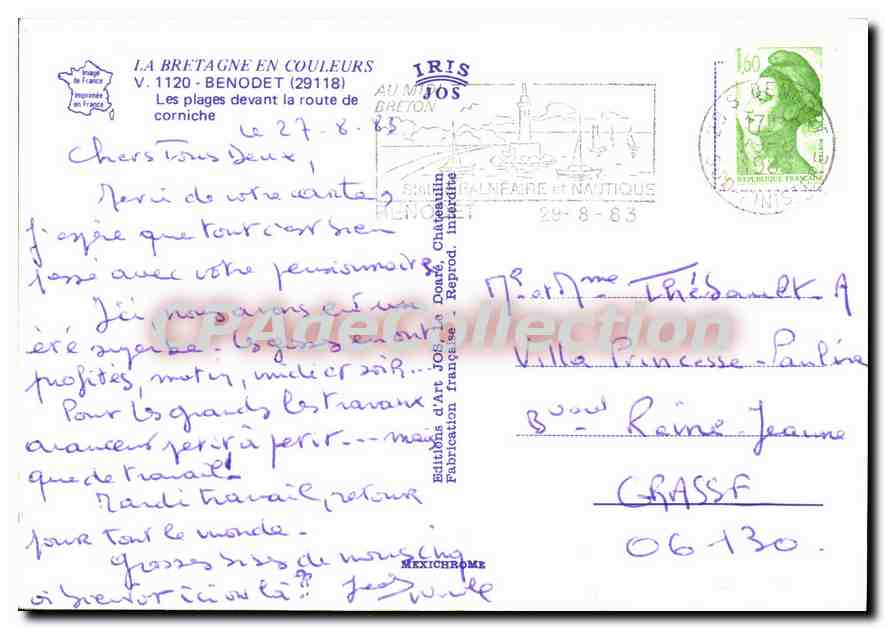 LA BRETAGNE EN COULEURS
V. 1120 - BENODET (29118)
Les plages devant la route de
corniche
Image
de France
Imprimée
en France
IRIS
JOS
AU MIDI
BRETON
STATION BALNÉAIRE et NAUTIQUE
BENODET 29-8-83
1,60
REPUBLIQUE FRANÇAISE
le 27-8-83
Chers Tous Deux,
Merci de votre carte,
J'espère que tout c'est bien
passé avec votre pensionnaire
Ici nous avons eu un
été superbe. Les gosses en ont
profités, matin, midi et soir...
Pour les grands les travaux
avancent petit à petit... mais
que de travail!
Mardi travail, retour
pour tout le monde.
Grosses bises de nous cinq
à bientôt ici ou là ??
Editions d'Art JOS, Le Doaré, Châteaulin
Fabrication française. Reprod. interdite
MEXICHROME
Mr et Mme Thébault. A
Villa Princesse-Pauline
Bvard Reine-Jeanne
GRASSE
06130.
CPAdeCollection